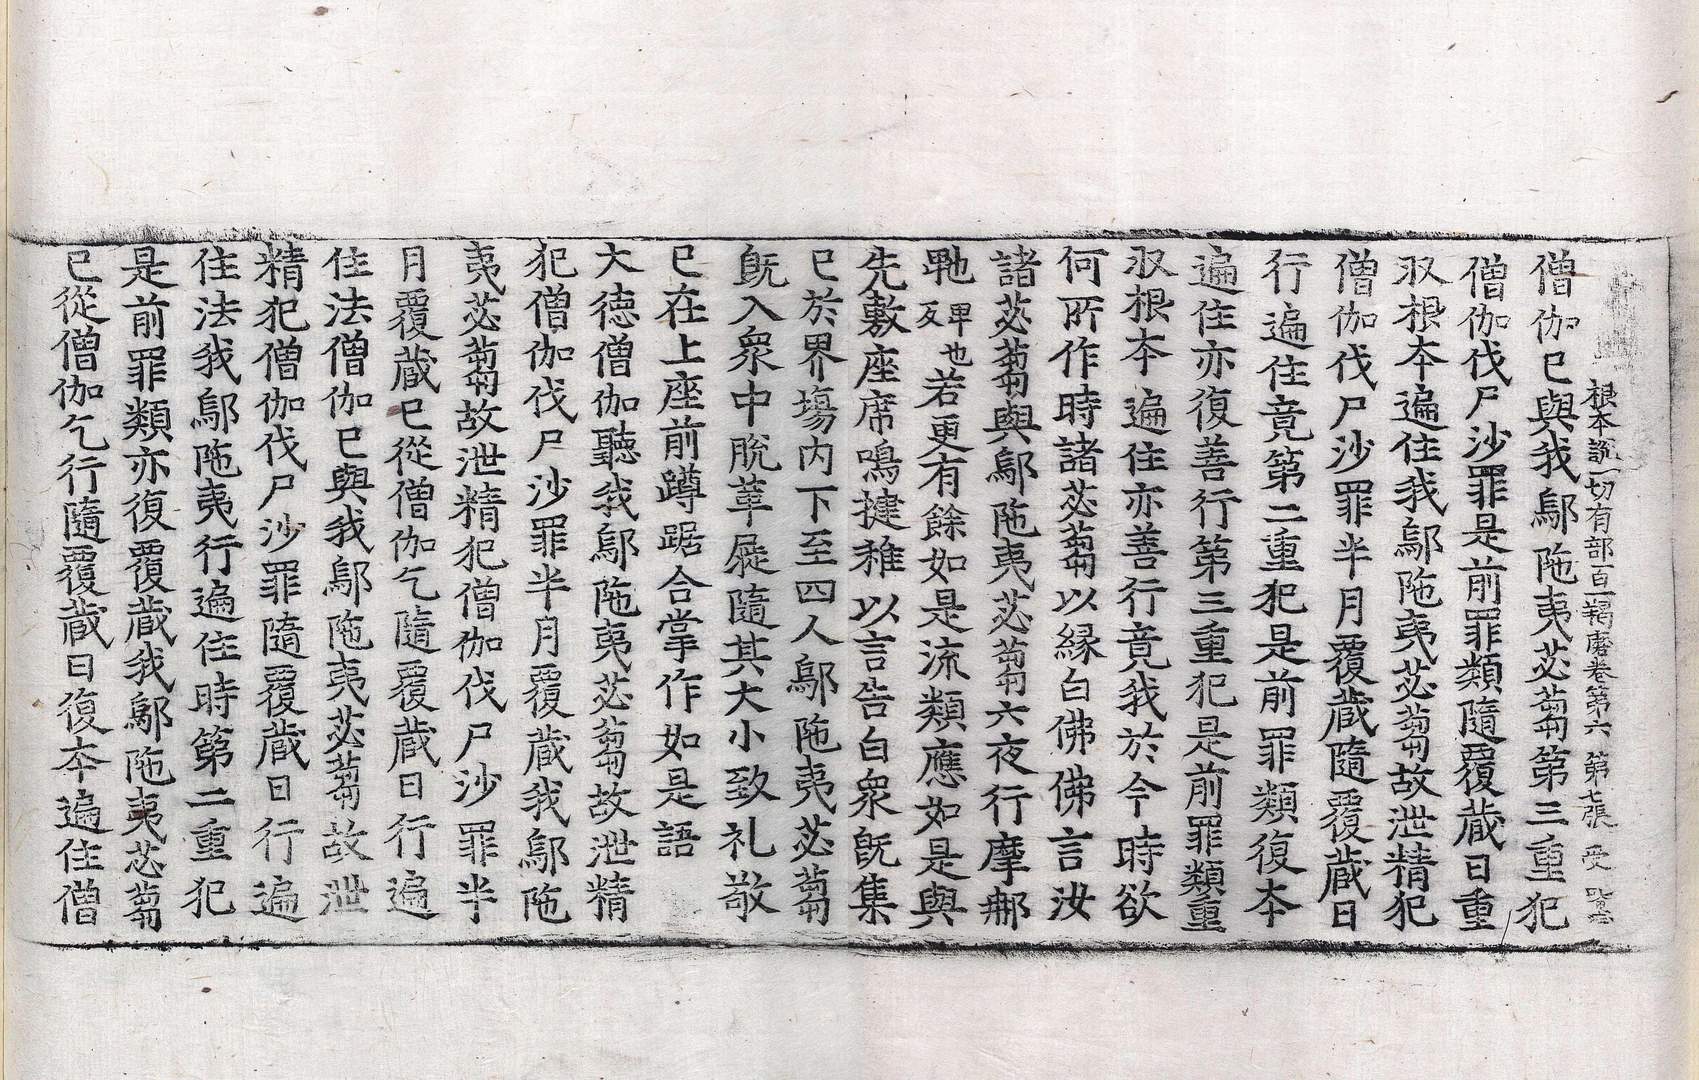 根本說一切有部百一羯磨卷第六 第七張 受
僧伽已與我鄔陁夷苾蒭第三重犯
僧伽伐尸沙罪是前罪類隨覆蔵日重
収根本遍住我鄔陁夷苾蒭故泄精犯
僧伽伐尸沙罪半月覆蔵隨覆蔵日
行遍住竟第二重犯是前罪類復本
遍住亦復善行第三重犯是前罪類重
収根本遍住亦善行竟我於今時欲
何所作時諸苾蒭以縁白佛佛言汝
諸苾蒭與鄔陁夷苾蒭六夜行摩𨚗
𭺗卑也反若更有餘如是流類應如是與
先敷座席鳴揵稚以言告白衆既集
已於界場内下至四人鄔陁夷苾蒭
既入衆中脫革屣隨其大小致礼敬
已在上座前蹲踞合掌作如是語
大德僧伽聽我鄔陁夷苾蒭故泄精
犯僧伽伐尸沙罪半月覆蔵我鄔陁
夷苾蒭故泄精犯僧伽伐尸沙罪半
月覆蔵已從僧伽乞隨覆蔵日行遍
住法僧伽已與我鄔陁夷苾蒭故泄
精犯僧伽伐尸沙罪隨覆蔵日行遍
住法我鄔陁夷行遍住時第二重犯
是前罪類亦復覆蔵我鄔陁夷苾蒭
已從僧伽乞行隨覆蔵日復本遍住僧